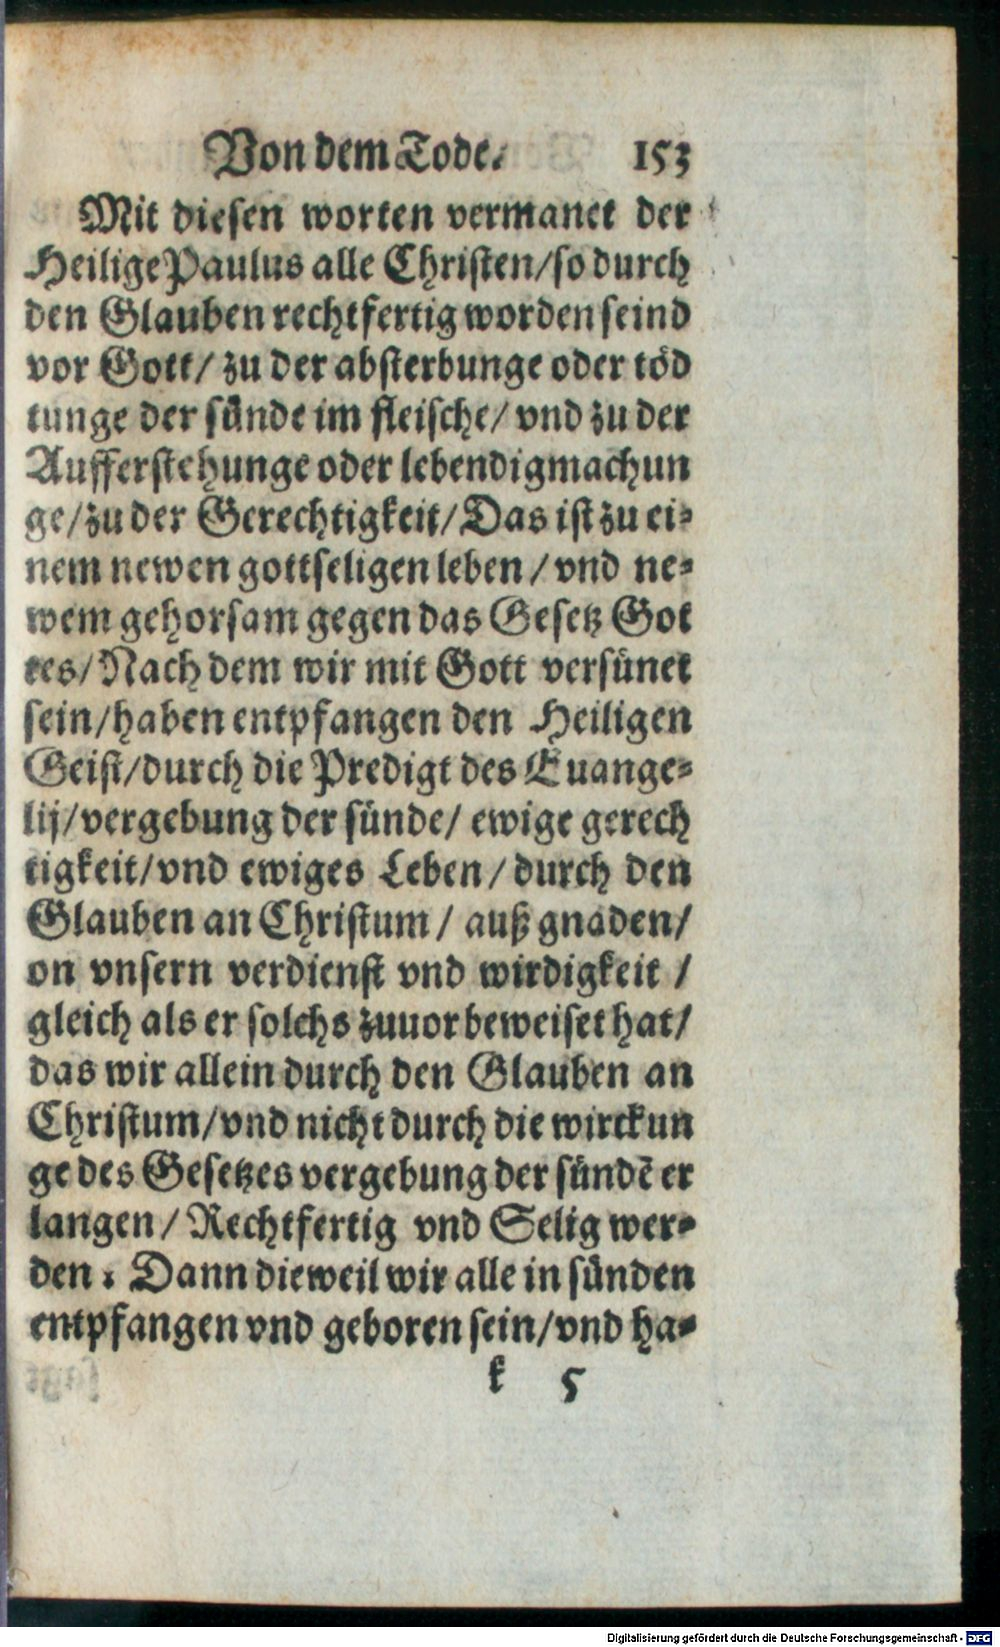 Von dem Tode. 153
Mit diesen worten vermanet der
Heilige Paulus alle Christen/so durch
den Glauben rechtfertig worden seind
vor Gott/ zu der absterbunge oder töd
tunge der sünde im fleische/ vnd zu der
Aufferstehunge oder lebendigmachun
ge/zu der Gerechtigkeit/Das ist zu ei-
nem newen gottseligen leben/vnd ne-
wem gehorsam gegen das Gesetz Got
tes/Nach dem wir mit Gott versünet
sein/haben entpfangen den Heiligen
Geist/durch die Predigt des Euange-
lij/vergebung der sünde/ ewige gerech
tigkeit/vnd ewiges Leben/durch den
Glauben an Christum/ auß gnaden/
on vnsern verdienst vnd wirdigkeit/
gleich als er solchs zuuor beweiset hat/
das wir allein durch den Glauben an
Christum/vnd nicht durch die wirckun
ge des Gesetzes vergebung der sündē er
langen/Rechtfertig vnd Selig wer-
den. Dann dieweil wir alle in sünden
entpfangen vnd geboren sein/vnd ha-
k 5
Digitalisierung gefördert durch die Deutsche Forschungsgemeinschaft - DFG